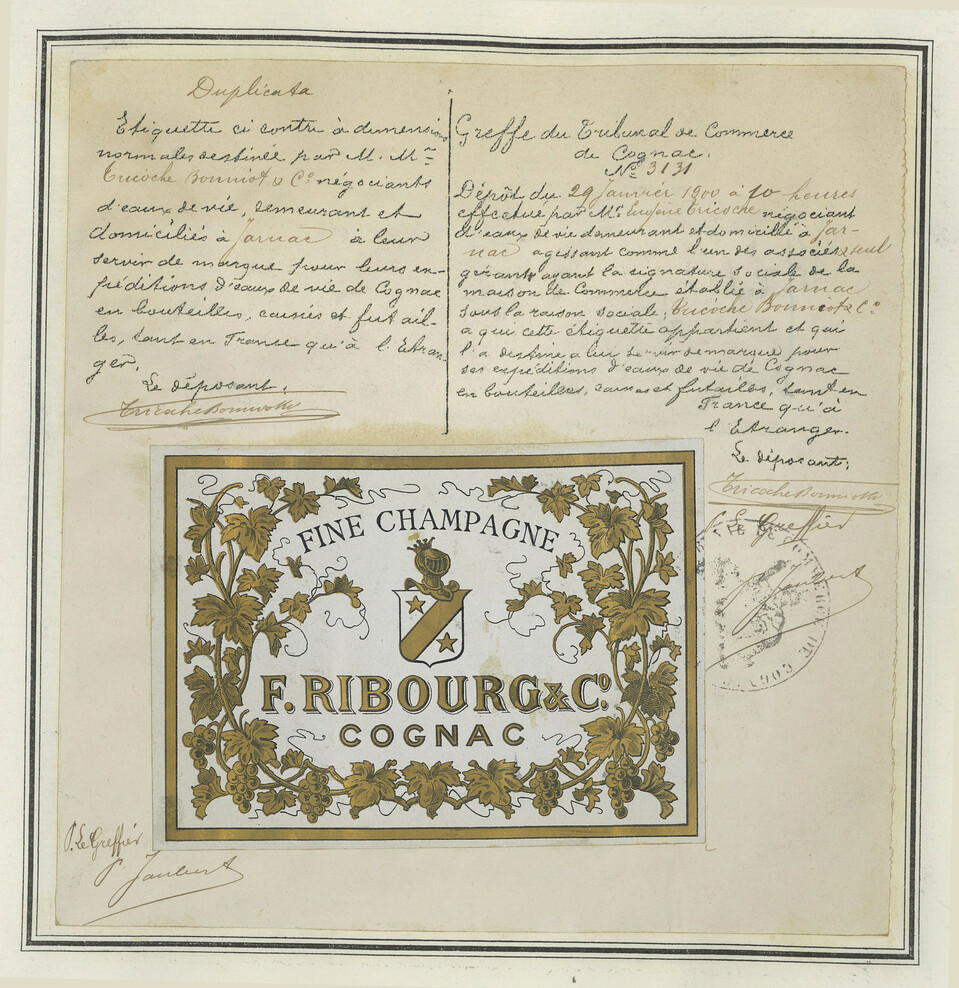 Duplicata
Etiquette ci contre à dimensions
normales destinée par M. Mrs
Tricoche Bonniot & Co négociants
d'eaux de vie, demeurant et
domiciliés à Jarnac à leur
servir de marque pour leurs ex-
péditions d'eaux de vie de Cognac
en bouteilles, caisses et futail-
les, tant en France qu'à l'Etran-
ger.
Le déposant.
Tricoche Bonniot & Co
Greffe du Tribunal de Commerce
de Cognac.
No 3131
Dépôt du 29 Janvier 1900 à 10 heures
effectué par Mr Eugène Tricoche négociant
d'eaux de vie demeurant et domicilié à Jar-
nac agissant comme l'un des associés seul
gérant ayant la signature sociale de la
maison de Commerce établie à Jarnac
sous la raison sociale: Tricoche Bonniot & Co
a qui cette étiquette appartient et qui
l'a destine a lui servir de marque pour
ses expéditions d'eaux de vie de Cognac
en bouteilles, caisses et futailles, tant en
France qu'à
l'Etranger.
Le déposant:
Tricoche Bonniot & Co
P. Le Greffier
P. Jaubert
COMMERCE DE COGNAC
FINE CHAMPAGNE
F. RIBOURG & Co.
COGNAC
P. Le Greffier
P. Jaubert